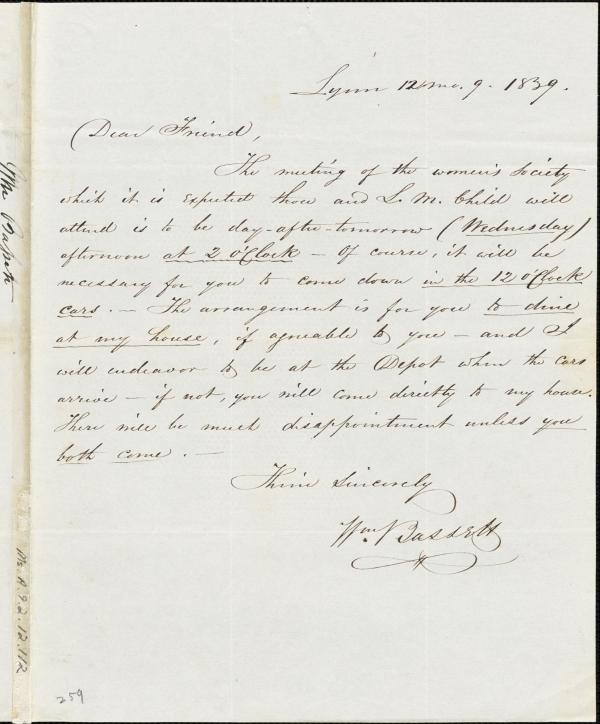 Lynn 12 mo. 9. 1839.
Dear Friend,
The meeting of the women's Society
which it is expected thou and L. M. Child will
attend is to be day-after-tomorrow (Wednesday)
afternoon at 2 o'Clock – Of course, it will be
necessary for you to come down in the 12 o'Clock
cars. – The arrangement is for you to dine
at my house, if agreable to you – and I
will endeavor to be at the Depot when the cars
arrive – if not, you will come directly to my house.
There will be much disappointment unless you
both come. –
Thine Sincerely
Wm. Bassett
Wm Bassett
Ms. A. 9.2.12.112
259